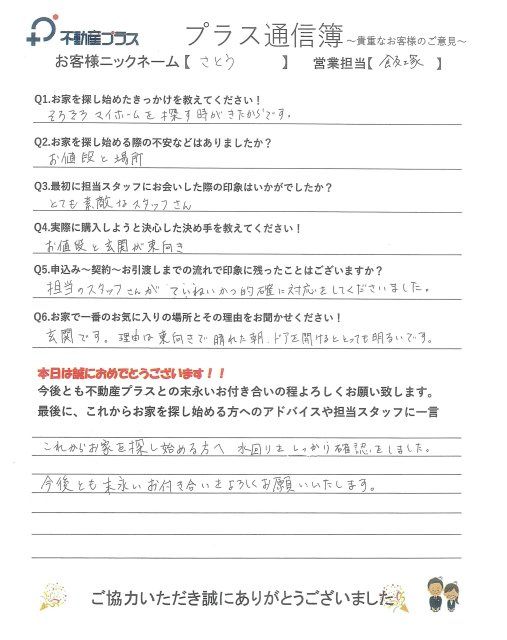 不動産プラス プラス通信簿 ～貴重なお客様のご意見～
お客様ニックネーム【 さとう 】 営業担当【 飯塚 】
Q1.お家を探し始めたきっかけを教えてください！
そろそろマイホームを探す時がきたからです。
Q2.お家を探し始める際の不安などはありましたか？
お値段と場所
Q3.最初に担当スタッフにお会いした際の印象はいかがでしたか？
とても素敵なスタッフさん
Q4.実際に購入しようと決心した決め手を教えてください！
お値段と玄関が東向き
Q5.申込み～契約～お引渡しまでの流れで印象に残ったことはございますか？
担当のスタッフさんが ていねいかつ的確に対応をしてくださいました。
Q6.お家で一番のお気に入りの場所とその理由をお聞かせください！
玄関です。理由は東向きで晴れた朝、ドアを開けるととっても明るいです。
本日は誠におめでとうございます！！
今後とも不動産プラスとの末永いお付き合いの程よろしくお願い致します。
最後に、これからお家を探し始める方へのアドバイスや担当スタッフに一言
これからお家を探し始める方へ 水回りをしっかり確認をしました。
今後とも末永いお付き合いをよろしくお願いいたします。
ご協力いただき誠にありがとうございました！